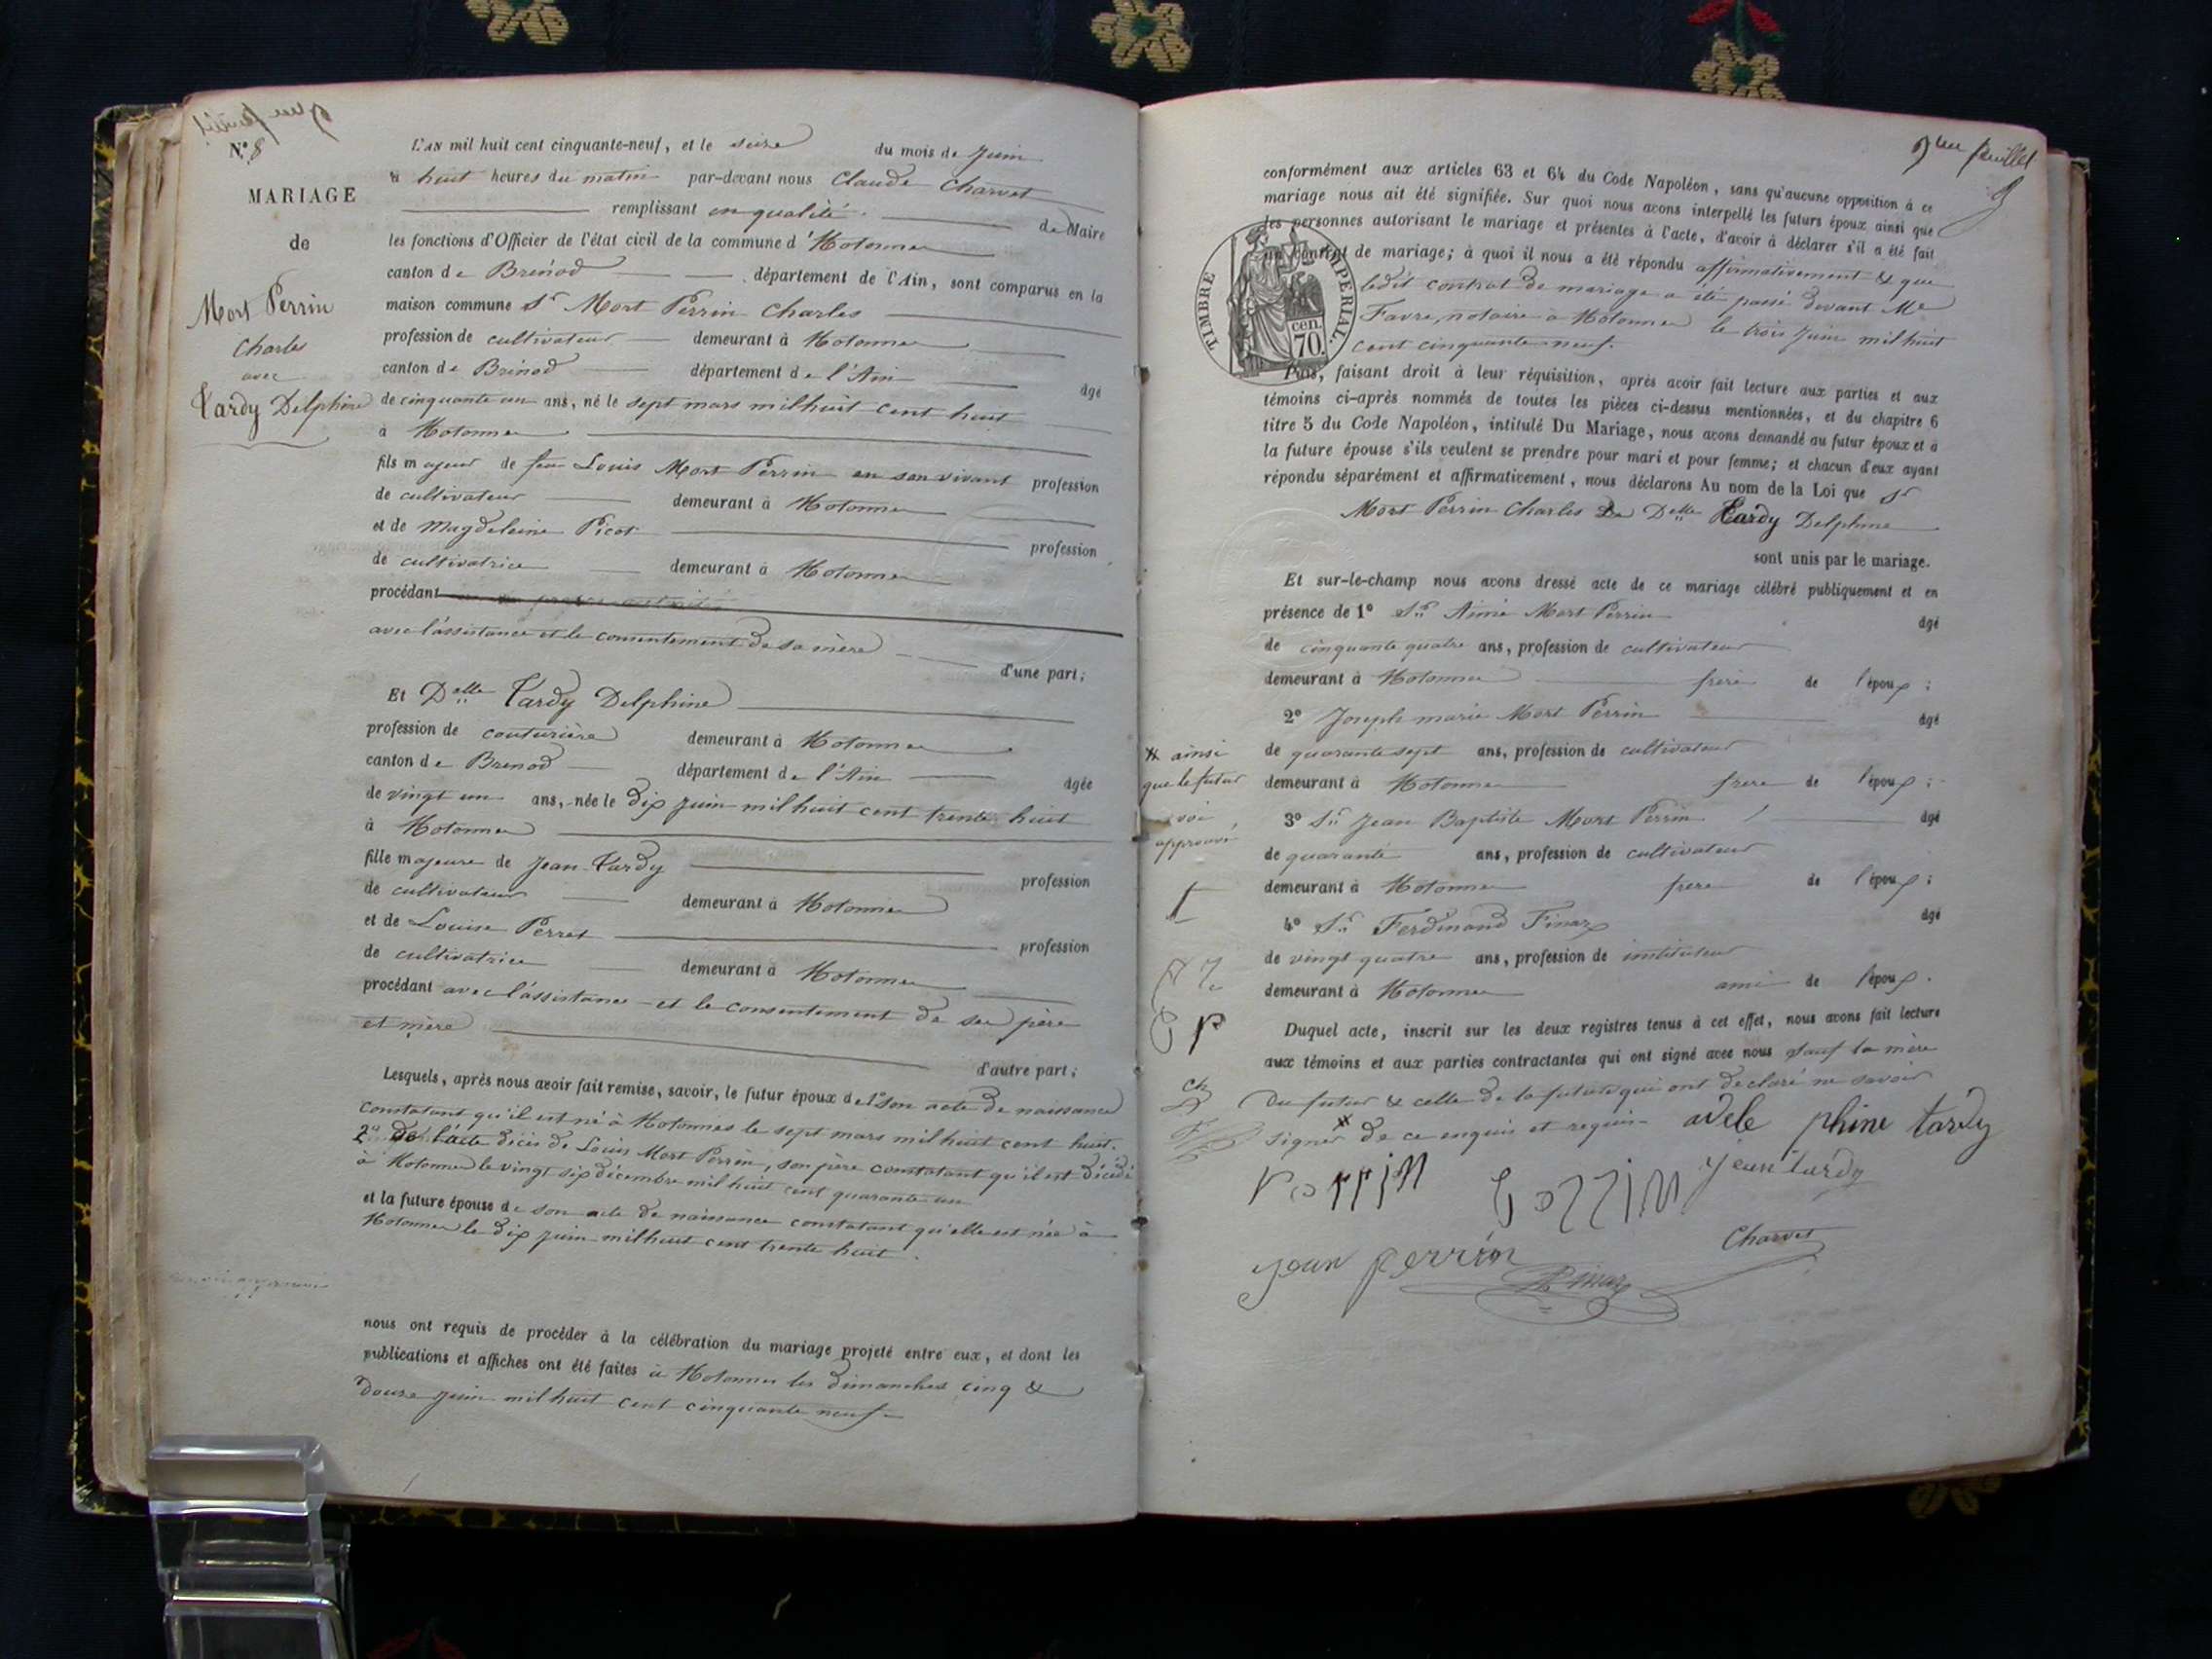 N.º 8
MARIAGE
de
Mort Perrin
Charles
avec
Tardy Delphine
L'AN mil huit cent cinquante-neuf, et le seize du mois de Juin
à huit heures du matin par-devant nous Claude Charvet
remplissant en qualité de Maire
les fonctions d'Officier de l'état civil de la commune d'Hotonnes
canton de Brénod département de l'Ain, sont comparus en la
maison commune Sr Mort Perrin Charles
profession de cultivateur demeurant à Hotonnes
canton de Brénod département de l'Ain âgé
de cinquante un ans, né le sept mars mil huit cent huit
à Hotonnes
fils majeur de feu Louis Mort Perrin en son vivant profession
de cultivateur demeurant à Hotonnes
et de Magdeleine Picot profession
de cultivatrice demeurant à Hotonnes
procédant
avec l'assistance et le consentement de sa mère d'une part;
Et Delle Tardy Delphine
profession de couturière demeurant à Hotonnes
canton de Brénod département de l'Ain âgée
de vingt un ans, née le dix juin mil huit cent trente huit
à Hotonnes
fille majeure de Jean Tardy profession
de cultivateur demeurant à Hotonnes
et de Louise Perret profession
de cultivatrice demeurant à Hotonnes
procédant avec l'assistance et le consentement de ses père
et mère d'autre part;
Lesquels, après nous avoir fait remise, savoir, le futur époux de 1º son acte de naissance
constatant qu'il est né à Hotonnes le sept mars mil huit cent huit.
2º de l'acte décès de Louis Mort Perrin, son père constatant qu'il est décédé
à Hotonnes le vingt six décembre mil huit cent quarante un
et la future épouse de son acte de naissance constatant qu'elle est née à
Hotonnes le dix juin mil huit cent trente huit.
nous ont requis de procéder à la célébration du mariage projeté entre eux, et dont les
publications et affiches ont été faites à Hotonnes les dimanches cinq &
douze juin mil huit cent cinquante neuf
9me feuillet
conformément aux articles 63 et 64 du Code Napoléon, sans qu'aucune opposition à ce
mariage nous ait été signifiée. Sur quoi nous avons interpellé les futurs époux ainsi que
les personnes autorisant le mariage et présentes à l'acte, d'avoir à déclarer s'il a été fait
un contrat de mariage; à quoi il nous a été répondu affirmativement & que
ledit contrat de mariage a été passé devant Me
Favre, notaire à Hotonnes le trois juin mil huit
cent cinquante neuf.
TIMBRE IMPERIAL.
cen.
70.
Puis, faisant droit à leur réquisition, après avoir fait lecture aux parties et aux
témoins ci-après nommés de toutes les pièces ci-dessus mentionnées, et du chapitre 6
titre 5 du Code Napoléon, intitulé Du Mariage, nous avons demandé au futur époux et à
la future épouse s'ils veulent se prendre pour mari et pour femme; et chacun d'eux ayant
répondu séparément et affirmativement, nous déclarons Au nom de la Loi que Sr
Mort Perrin Charles & Delle Tardy Delphine
sont unis par le mariage.
Et sur-le-champ nous avons dressé acte de ce mariage célébré publiquement et en
présence de 1º Sr Aimé Mort Perrin âgé
de cinquante quatre ans, profession de cultivateur
demeurant à Hotonnes frère de l'époux;
2º Joseph marie Mort Perrin âgé
de quarante sept ans, profession de cultivateur
demeurant à Hotonnes frère de l'époux;
3º Sr Jean Baptiste Mort Perrin âgé
de quarante ans, profession de cultivateur
demeurant à Hotonnes frère de l'époux;
4º Sr Ferdinand Finaz âgé
de vingt quatre ans, profession de instituteur
demeurant à Hotonnes ami de l'époux.
Duquel acte, inscrit sur les deux registres tenus à cet effet, nous avons fait lecture
aux témoins et aux parties contractantes qui ont signé avec nous sauf la mère
du futur & celle de la future qui ont déclaré ne savoir
signer de ce enquis et requis
ainsi
que le futur
approuvé
adele phine tardy
Perrin
Perrin
Jean tardy
Jean perrin
Finaz
Charvet